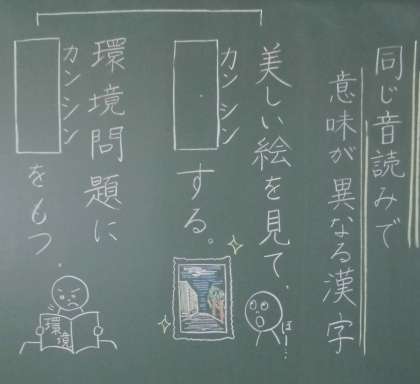 同じ音読みで
意味が異なる漢字
美しい絵を見て、
カンシン
する。
環境問題に
カンシン
をもつ。
ほー…
環境